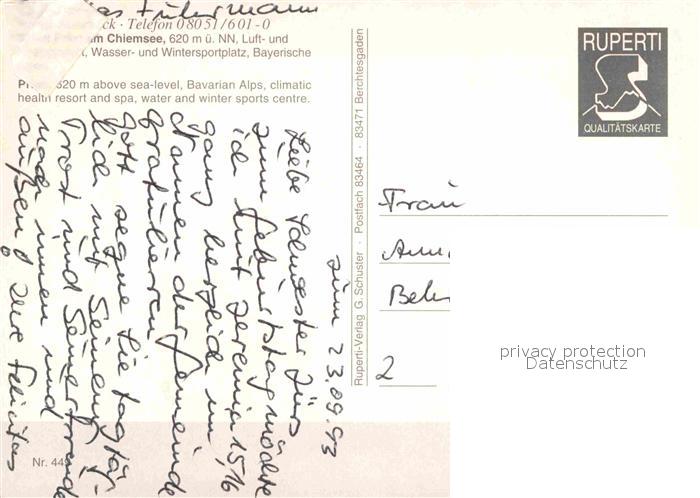 ck · Telefon 08051/601-0
am Chiemsee, 620 m ü. NN, Luft- und
, Wasser- und Wintersportplatz, Bayerische
620 m above sea-level, Bavarian Alps, climatic
health resort and spa, water and winter sports centre.
zum 23.09.93
Liebe Schwester
zum Geburtstag möchte
ich mit Jeremia 15,16
ganz herzlich im
Namen der Gemeinde
gratulieren
Gott segne Sie tag täg-
lich mit Seinem
Trost und Seiner Freude
nach innen und
außen! Ihre Felicitas
Fuhrmann
Nr. 449
Ruperti-Verlag G. Schuster · Postfach 83464 · 83471 Berchtesgaden
RUPERTI
QUALITÄTSKARTE
Frau
2
privacy protection
Datenschutz